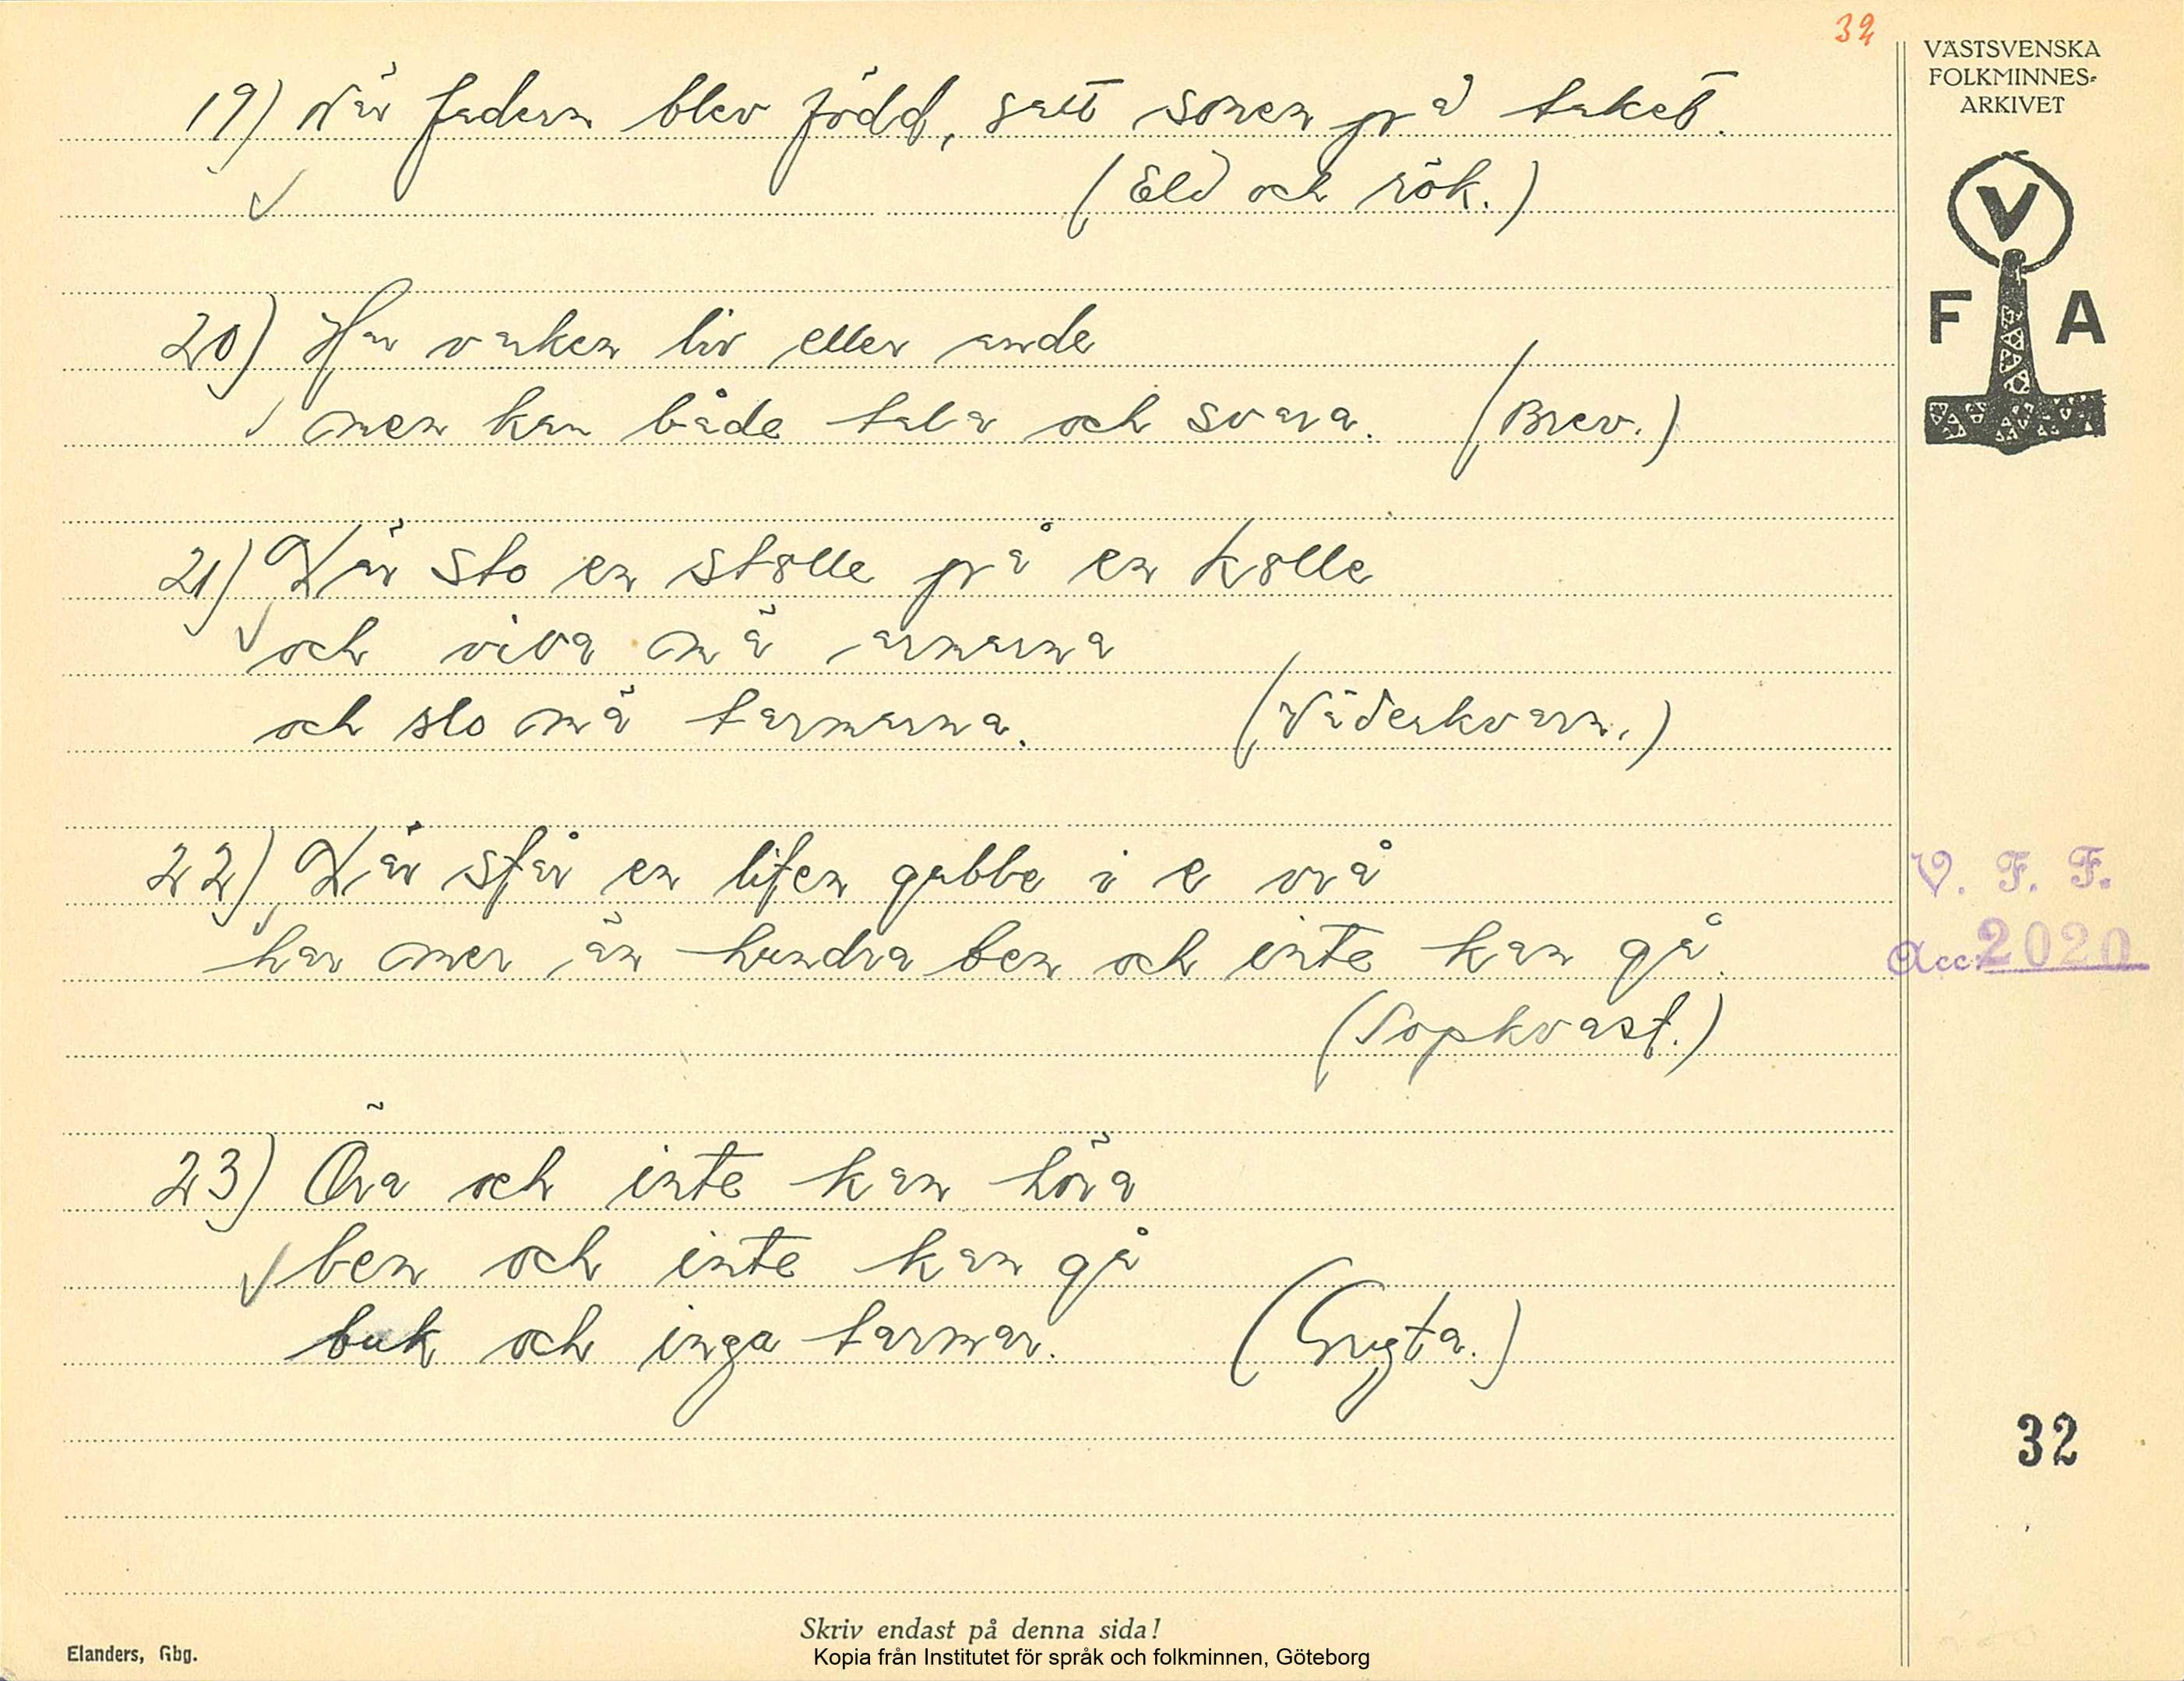 32
VÄSTSVENSKA
FOLKMINNES-
ARKIVET
V
F A
19) När fadern blev född, satt sonen på taket.
(Eld och rök.)
20) Har varken liv eller ande
men kan både tala och svara. (Brev.)
21) Där sto en stolle på en kolle
och viva mä armarna
och slo mä tarmarna. (Väderkvarn.)
22) Där står en liten gubbe i e vrå
har mer än hundra ben och inte kan gå.
(Sopkvast.)
23) Öra och inte kan höra
ben och inte kan gå
buk och inga tarmar. (Gryta.)
V. F. F.
Acc: 2020
32
Skriv endast på denna sida!
Elanders, Gbg.
Kopia från Institutet för språk och folkminnen, Göteborg